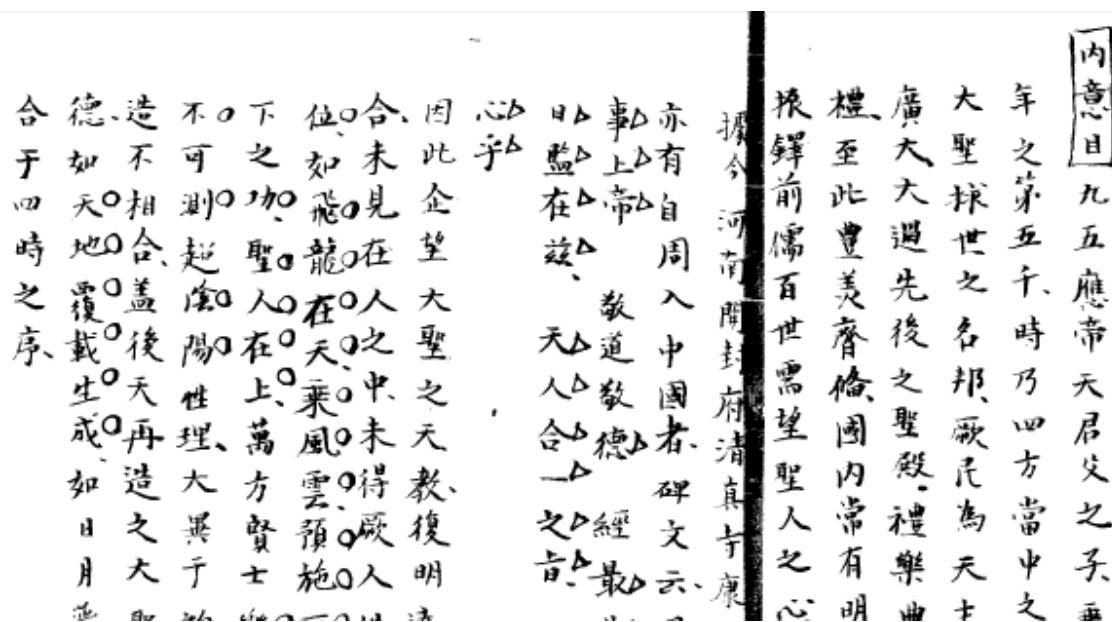 內意目九五應帝天君父之子、
年之第五千、時乃四方當中之
大聖捄世之名邦、厥民為天士
廣大、大過先後之聖殿。禮樂典
禮、至此豐美齊條、國內常有明
振鐸前儒百世需望聖人之心
據今河南開封府清真寺康
亦有自周入中國者、碑文云、
事上帝敬道敬德經最
日監在兹、天人合一之旨、
心乎
因此企望大聖之天教、復明
合、未見在人之中、未得厥人
位、如飛龍在天、乘風雲預施
下之功、聖人在上、萬方賢士
不可測超陰陽性理、大異于
造不相合、盖後天再造之大聖
德、如天地覆載生成、如日月
合于四時之序、